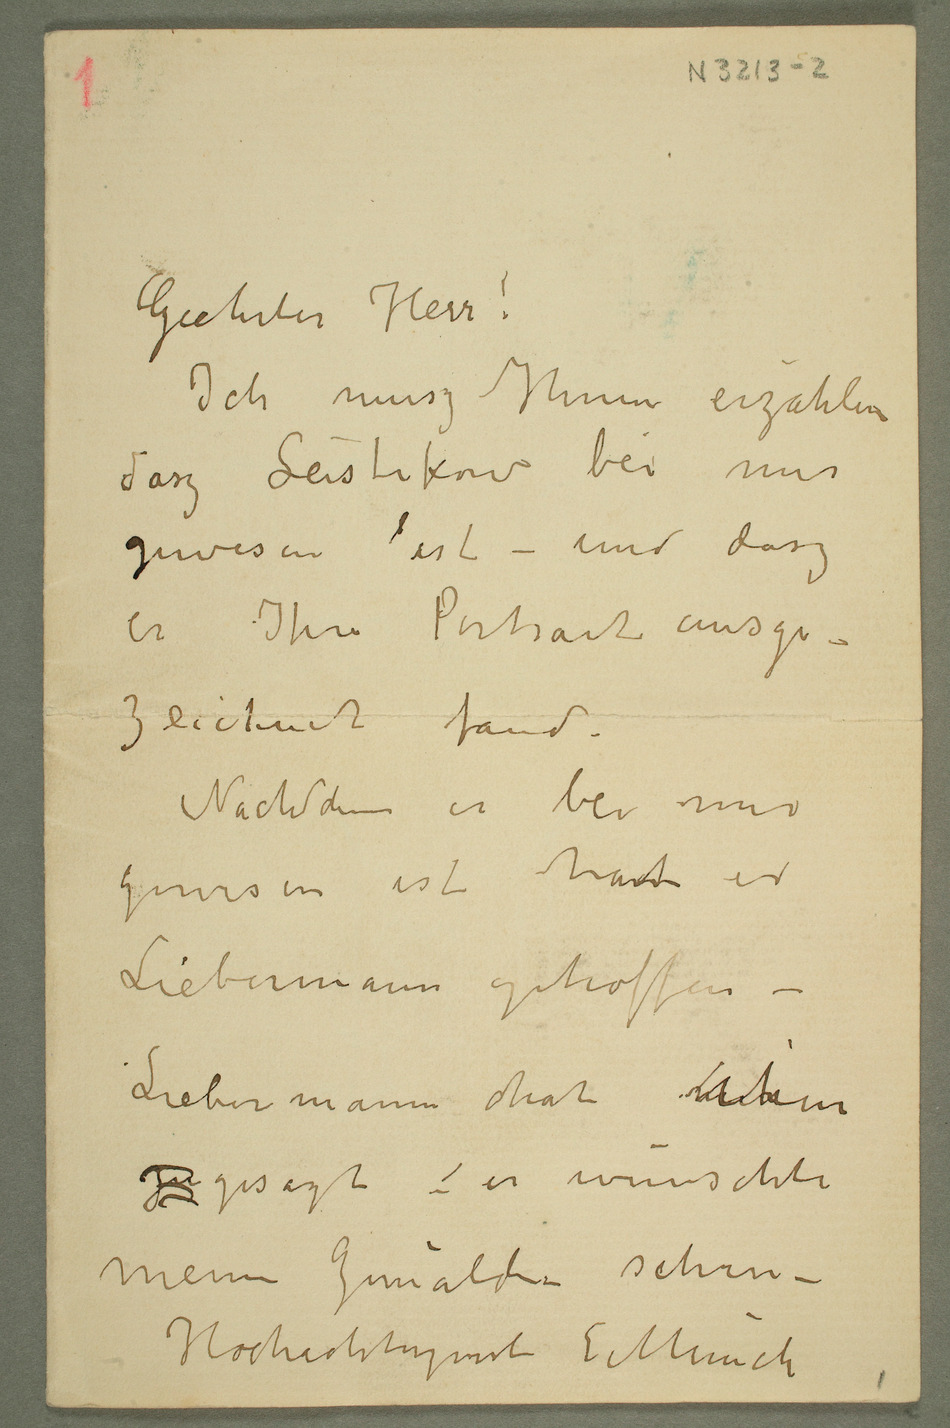 1
N 3213-2
Geehrter Herr!
Ich musz Ihnen erzählen
dasz Leistikow bei mir
gewesen ist – und dasz
er Ihre Portrait ausge-
zeichnet fand.
Nachdem er bei mir
gewesen ist hat er
Liebermann getroffen –
Liebermann hat ihm
gesagt – er wünschte
meine Gemälde sehen –
Hochachtungsvoll E. Munch